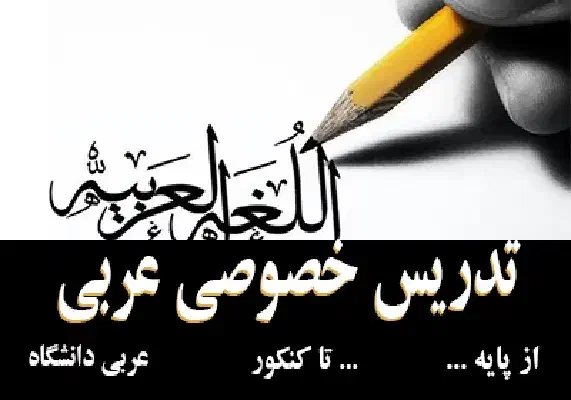 اللغة العربية
تدریس خصوصی عربی
از پایه ... ... تا کنکور عربی دانشگاه